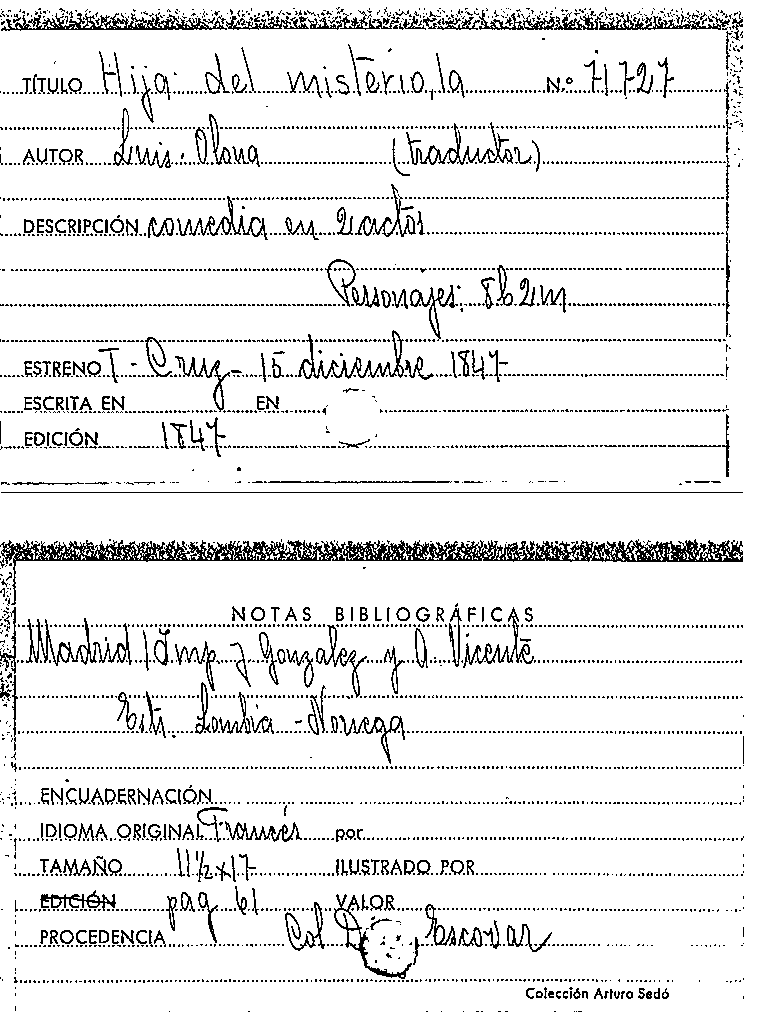 TÍTULO Hija del misterio, la N.º 71727
AUTOR Luis Olona (traductor)
DESCRIPCIÓN comedia en 2 actos
Personajes: 8h 2m
ESTRENO T. Cruz - 15 diciembre 1847
ESCRITA EN EN
EDICIÓN 1847
NOTAS BIBLIOGRÁFICAS
Madrid / Imp J Gonzalez y A. Vicente
Estr. Lombia - Noriega
ENCUADERNACIÓN
IDIOMA ORIGINAL Francés por
TAMAÑO 11½ x 17 ILUSTRADO POR
EDICIÓN pag 61 VALOR
PROCEDENCIA Col Escovar
Colección Arturo Sedó